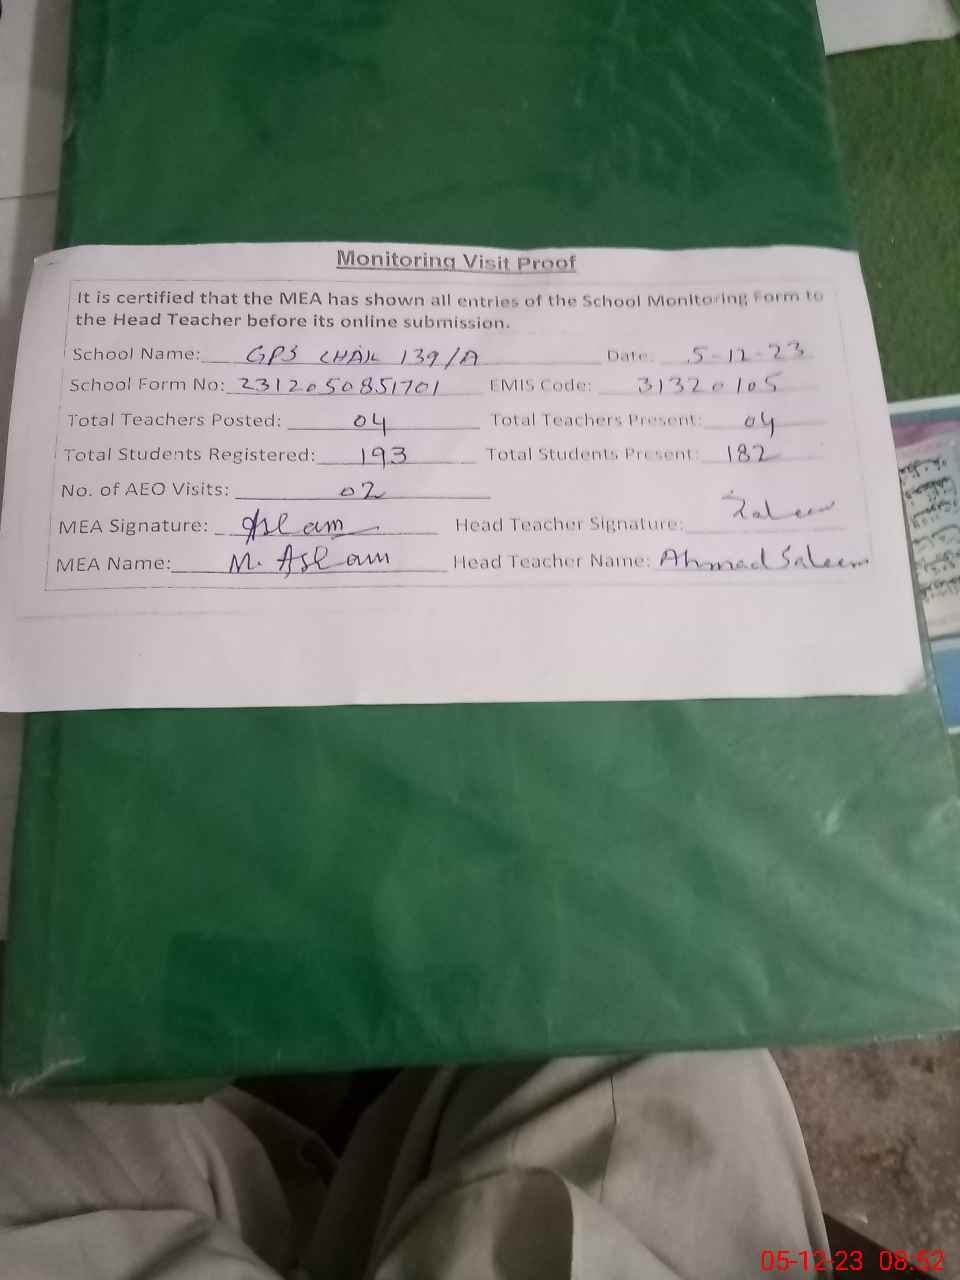 Monitoring Visit Proof
It is certified that the MEA has shown all entries of the School Monitoring Form to
the Head Teacher before its online submission.
School Name: GPS CHAK 139/A Date: 5-12-23
School Form No: 2312050851701 EMIS Code: 31320105
Total Teachers Posted: 04 Total Teachers Present: 04
Total Students Registered: 193 Total Students Present: 182
No. of AEO Visits: 02
MEA Signature: Aslam Head Teacher Signature:
MEA Name: M. Aslam Head Teacher Name: Ahmad Saleem
05-12-23 08:52